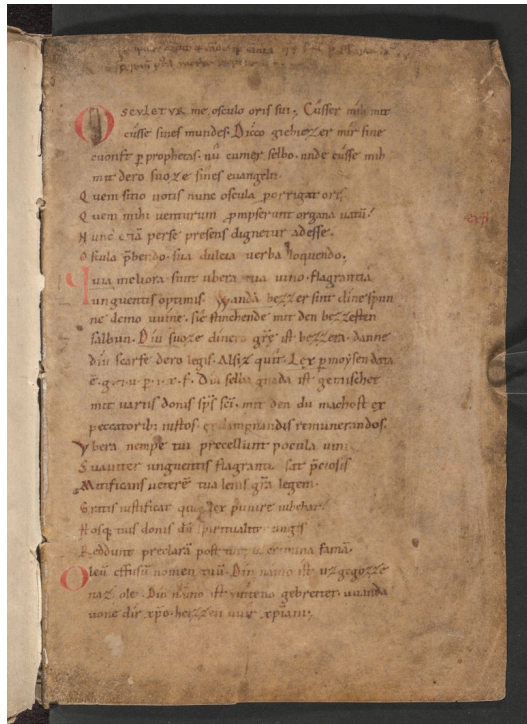 OSCULETUR me osculo oris sui. Cusser mih mit
cusse sines mundes. Dicco giehiezzer mir sine
cuonft p prophetas. nu cumer selbo. unde cusse mih
mit dero suoze sines euangelii.
Quem sitio votis nunc oscula porrigat oris
Quem mihi venturum prompserunt organa vatū.
Nunc etiā per se presens dignetur adesse.
Oscula p̄bendo. sua dulcia verba loquendo.
Quia meliora sunt ubera tua vino. flagrantia
unguentis optimis. Wanda bezzer sint dine spun
ne demo uuine. sie stinchente mit den bezzesten
salbun. Diu suoze dinero gr̄e ist bezzera. danne
diu scarfe dero legis. Als iz quit. Lex p moysen data
ē. g. v. p. x. f. Diu selba gnada ist gemischet
mit variis donis sp̄s sc̄i. mit den du machost ex
peccatorib; iustos. et damnandis remunerandos.
Ubera nempe tui precellunt pocula vini
Suaviter unguentis flagrantia p̄ciosis
Mitificans veterē tua lenis gr̄a legem.
Gratis iustificat quos lex punire iubebat.
Hosq; tuis donis dū spiritualit̄ ungis
Reddunt preclarā post crimina famā.
Oleū effusū nomen tuū. Din namo ist uzgegozze
naz ole. Din namo ist uuiteno gebreitet. uuanda
uone dir xp̄o. heizzen uuir xp̄iani.